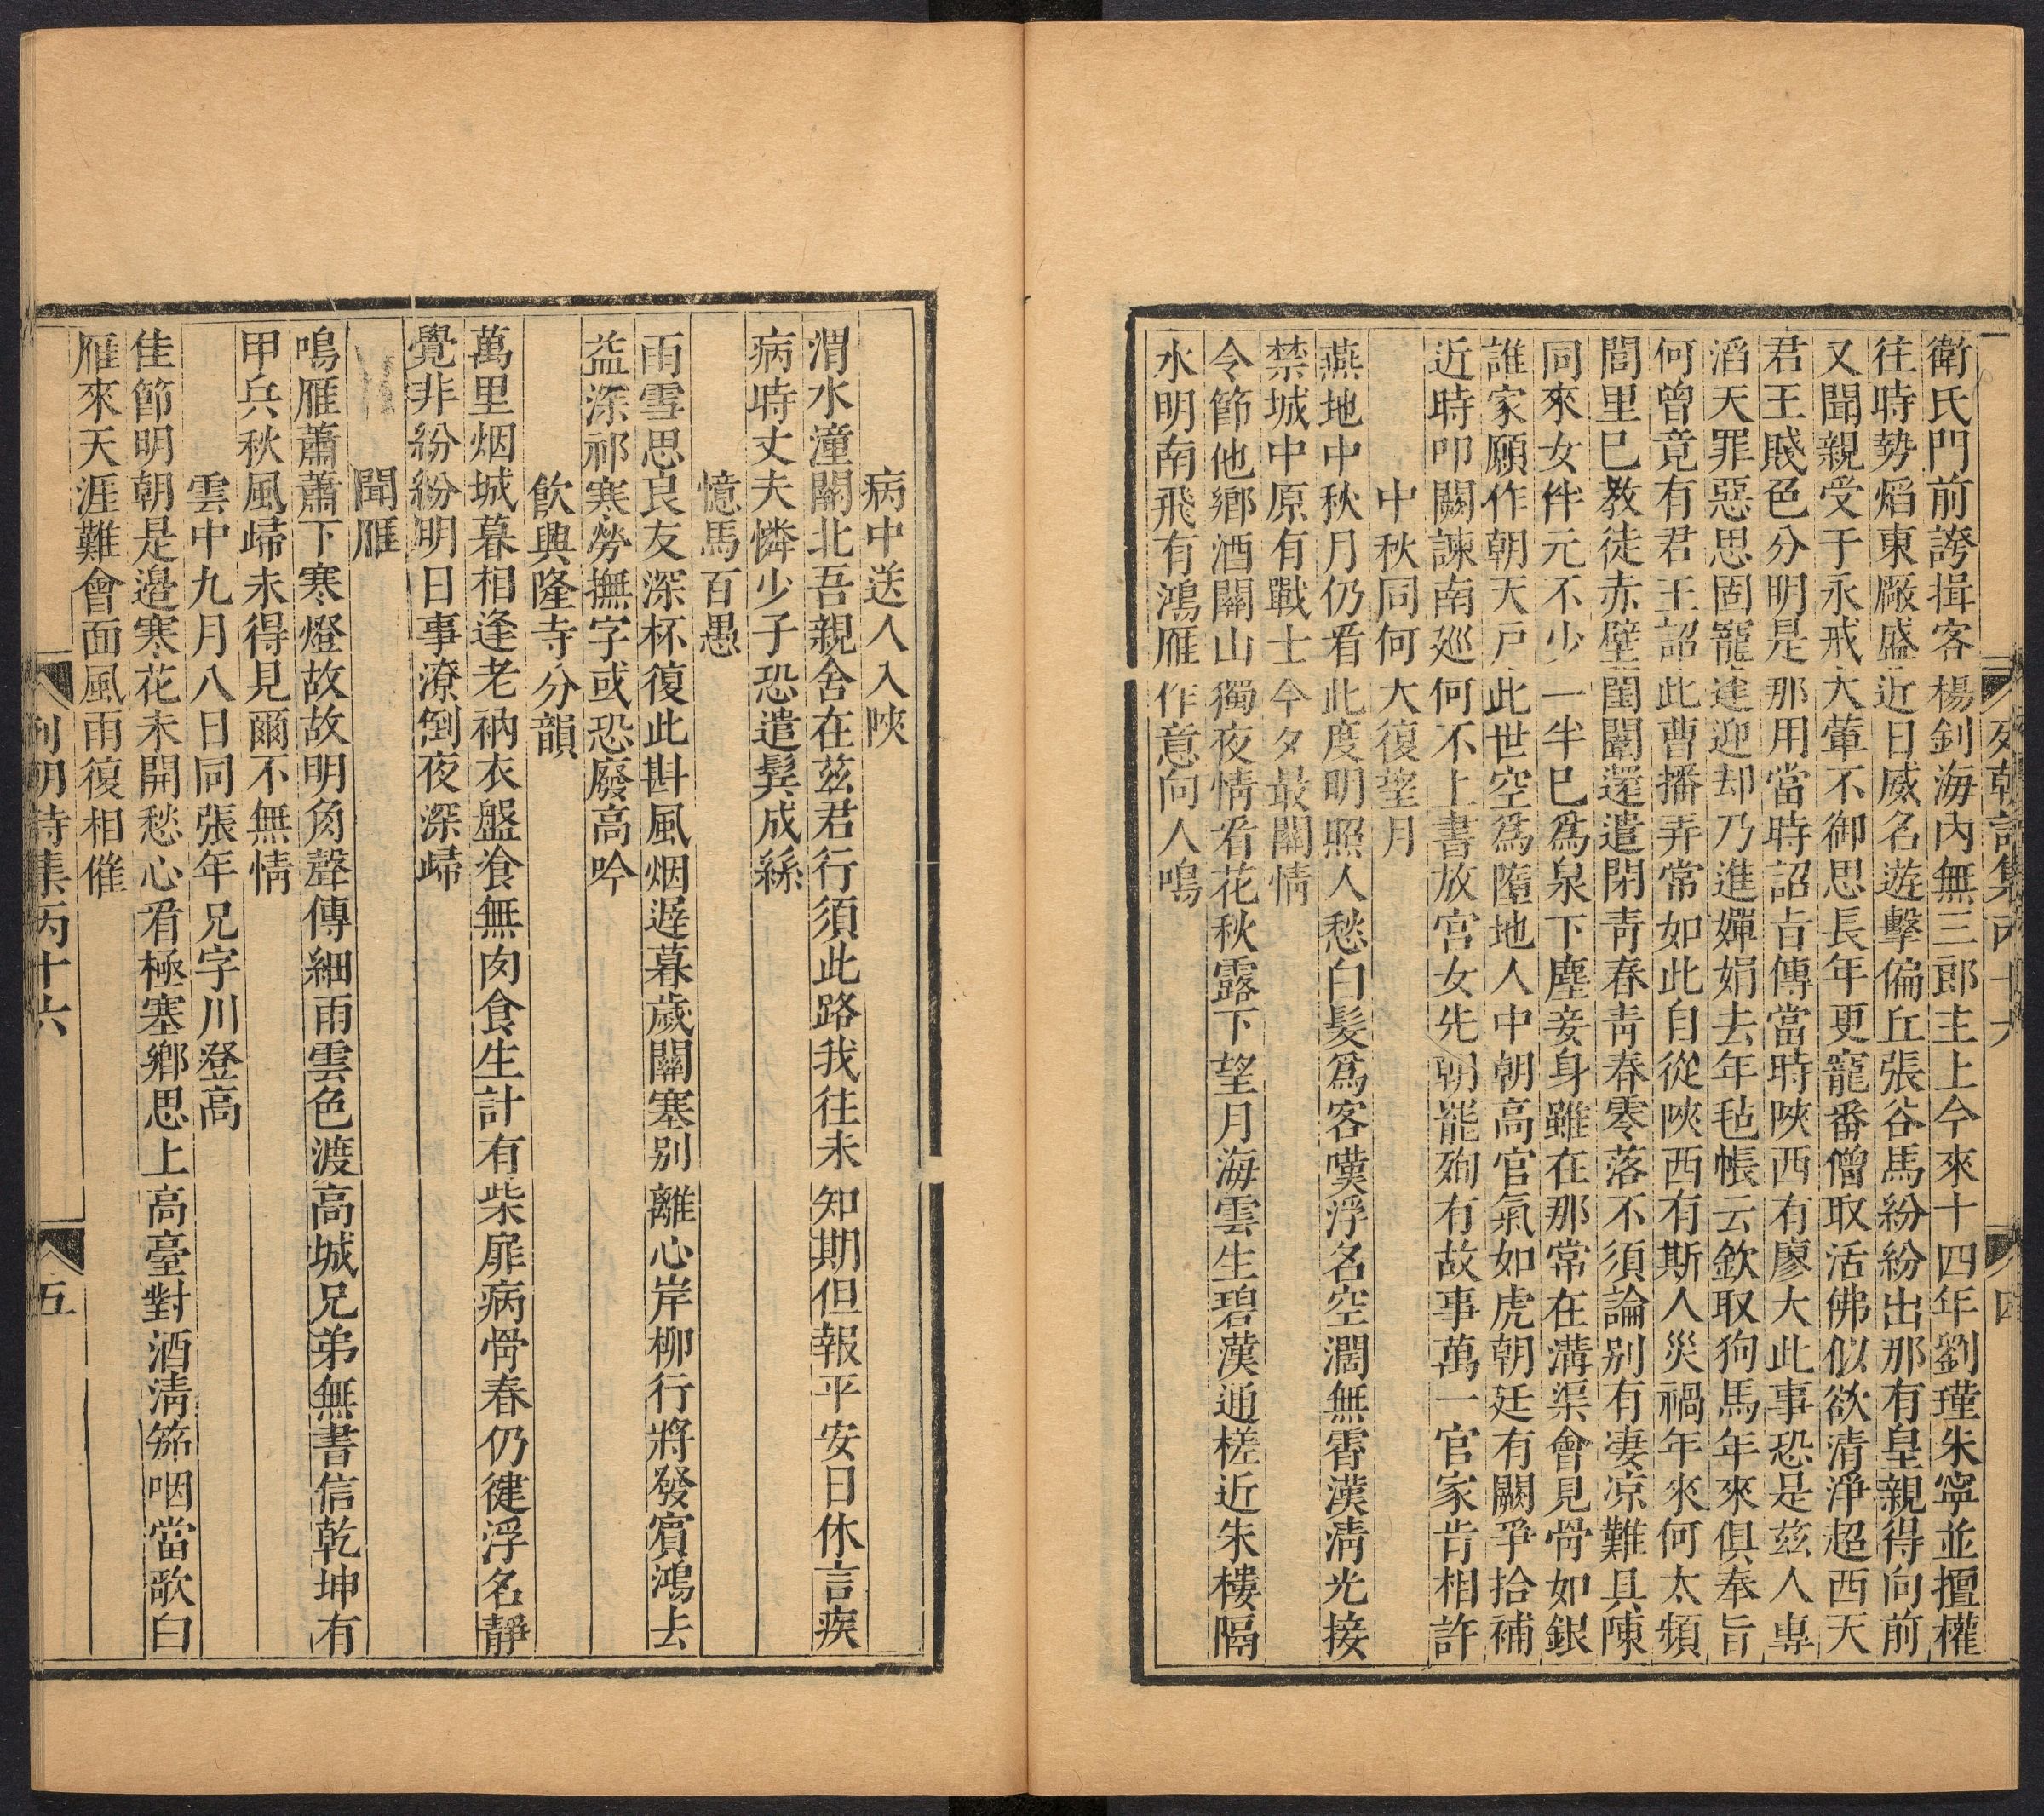 列朝詩集丙十六 四
衛氏門前誇揖客楊釗海內無三郎主上今來十四年劉瑾朱寧並擅權
往時勢焰東廠盛近日威名遊擊偏丘張谷馬紛紛出那有皇親得向前
又聞親受于永戒大葷不御思長年更寵番僧取活佛似欲清淨超西天
君王賤色分明是那用當時詔占傳當時陝西有廖大此事恐是茲人專
滔天罪惡思固寵逢迎却乃進嬋娟去年毡帳云欽取狗馬年來俱奉旨
何曾竟有君王詔此曹播弄常如此自從陝西有斯人災禍年來何太頻
閭里巳教徒赤壁閨闈還遣閉青春青春零落不須論别有凄凉難具陳
同來女伴元不少一半巳爲泉下塵妾身雖在那常在溝渠會見骨如銀
誰家願作朝天戸此世空爲墮地人中朝高官氣如虎朝廷有闕爭拾補
近時叩闕諫南廵何不上書放宮女先朝能殉有故事萬一官家肯相許
中秋同何大復望月
燕地中秋月仍看此度明照人愁白髪爲客嘆浮名空濶無霄漢淸光接
禁城中原有戰士今夕最關情
令節他鄉酒關山獨夜情看花秋露下望月海雲生碧漢通槎近朱樓隔
水明南飛有鴻雁作意向人鳴
病中送人入陝
渭水潼關北吾親舍在茲君行須此路我往未知期但報平安日休言疾
病時丈夫憐少子恐遣鬂成絲
憶馬百愚
雨雪思良友深杯復此斟風烟遅暮歲關塞别離心岸柳行將發賓鴻去
益深祁寒勞撫字或恐廢高吟
飲興隆寺分韻
萬里烟城暮相逢老衲衣盤飡無肉食生計有柴扉病骨春仍健浮名靜
覺非紛紛明日事潦倒夜深歸
聞雁
鳴雁蕭蕭下寒燈故故明角聲傳細雨雲色渡高城兄弟無書信乾坤有
甲兵秋風歸未得見爾不無情
雲中九月八日同張年兄字川登高
佳節明朝是邉寒花未開愁心看極塞鄉思上高臺對酒淸笳咽當歌白
雁來天涯難會面風雨復相催
列朝詩集丙十六 五